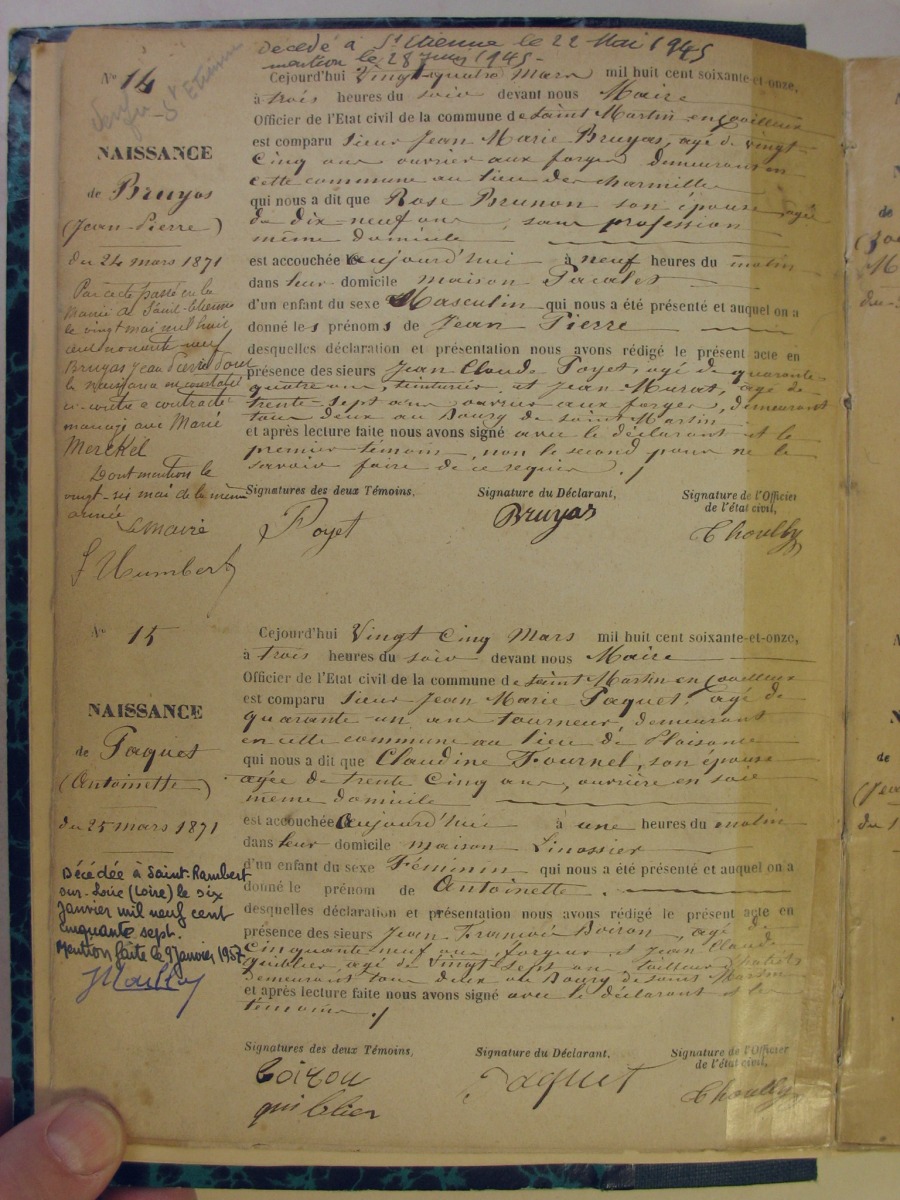 Décédé à St Etienne le 22 Mai 1945
mention le 28 Juin 1945-
No 14
St Etienne
NAISSANCE
de Bruyas
(Jean-Pierre)
du 24 mars 1871
Par acte passé en la
Mairie de Saint-Etienne
le vingt mai mil huit
cent nonante neuf
Bruyas Jean Pierre dont
la naissance est constatée
ci-contre a contracté
mariage avec Marie
Merckel
Dont mention le
vingt-six mai de la même
année
Le Maire
Humbert
Cejourd'hui Vingt-quatre Mars mil huit cent soixante-et-onze,
à trois heures du soir devant nous Maire
Officier de l'Etat civil de la commune de Saint Martin en Coailleux
est comparu Sieur Jean Marie Bruyas, agé de vingt-
Cinq ans ouvrier aux forges demeurant en
cette commune au lieu de charmille
qui nous a dit que Rose Brunon son épouse agée
de dix-neuf ans, sans profession
même domicile
est accouchée aujourd'hui à neuf heures du matin
dans leur domicile maison Pacalet
d'un enfant du sexe Masculin qui nous a été présenté et auquel on a
donné les prénoms de Jean Pierre
desquelles déclaration et présentation nous avons rédigé le présent acte en
présence des sieurs Jean Claude Poyet, agé de quarante
quatre ans, teinturier, et Jean Murat, agé de
trente-sept ans ouvrier aux forges, demeurant
tous deux au Bourg de Saint Martin
et après lecture faite nous avons signé avec le déclarant et le
premier témoin, non le second pour ne le
savoir faire de ce requis ./
Signatures des deux Témoins,
Signature du Déclarant,
Signature de l'Officier
de l'état civil,
Poyet
Bruyas
Choully
No 15
NAISSANCE
de Paquet
(Antoinette)
du 25 mars 1871
Décédée à Saint-Rambert
sur-Loire (Loire) le six
Janvier mil neuf cent
cinquante sept.
Mention faite le 9 Janvier 1957
Cejourd'hui Vingt Cinq Mars mil huit cent soixante-et-onze,
à trois heures du soir devant nous Maire
Officier de l'Etat civil de la commune de Saint Martin en Coailleux
est comparu Sieur Jean Marie Paquet, agé de
quarante-un ans tourneur, demeurant
en cette commune au lieu de Plaisance
qui nous a dit que Claudine Fournel, son épouse
agée de trente Cinq ans, ouvrière en soie
même domicile
est accouchée aujourd'hui à une heures du matin
dans leur domicile maison Linossier
d'un enfant du sexe Féminin qui nous a été présenté et auquel on a
donné le prénom de Antoinette.
desquelles déclaration et présentation nous avons rédigé le présent acte en
présence des sieurs Jean François Boiron, agé de
Cinquante neuf ans, forgeur et Jean Claude
Quiblier, agé de vingt sept ans, tailleur
demeurant tous deux au Bourg de Saint Martin
et après lecture faite nous avons signé avec le déclarant et les
témoins ./
Signatures des deux Témoins,
Signature du Déclarant.
Signature de l'Officier
de l'état civil,
Boirou
quiblier
Paquet
Choully